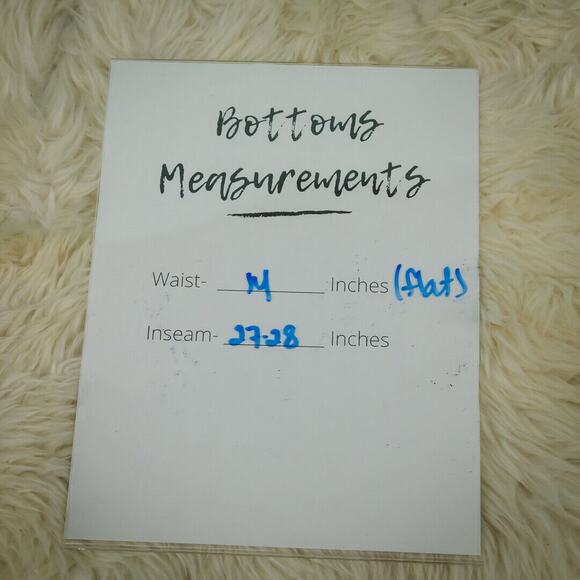 Bottoms
Measurements
Waist- M Inches (flat)
Inseam- 27-28 Inches